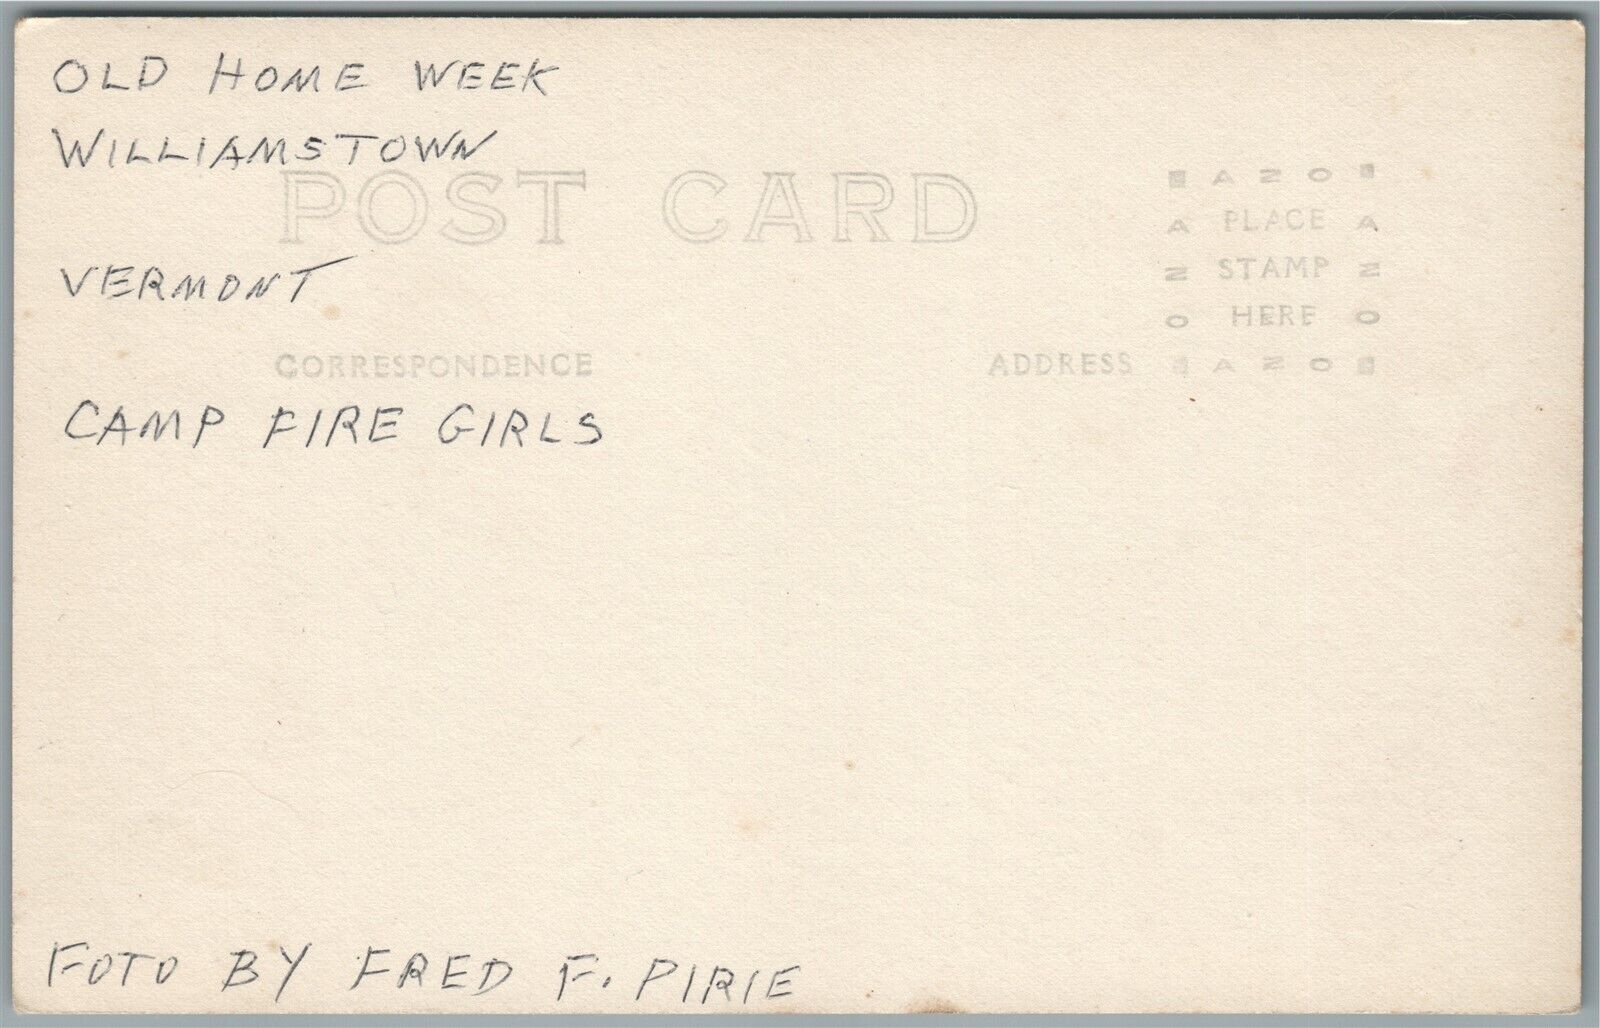 OLD HOME WEEK
WILLIAMSTOWN
POST CARD
AZO
A PLACE A
Z STAMP Z
O HERE O
VERMONT
CORRESPONDENCE
ADDRESS
AZO
CAMP FIRE GIRLS
FOTO BY FRED F. PIRIE